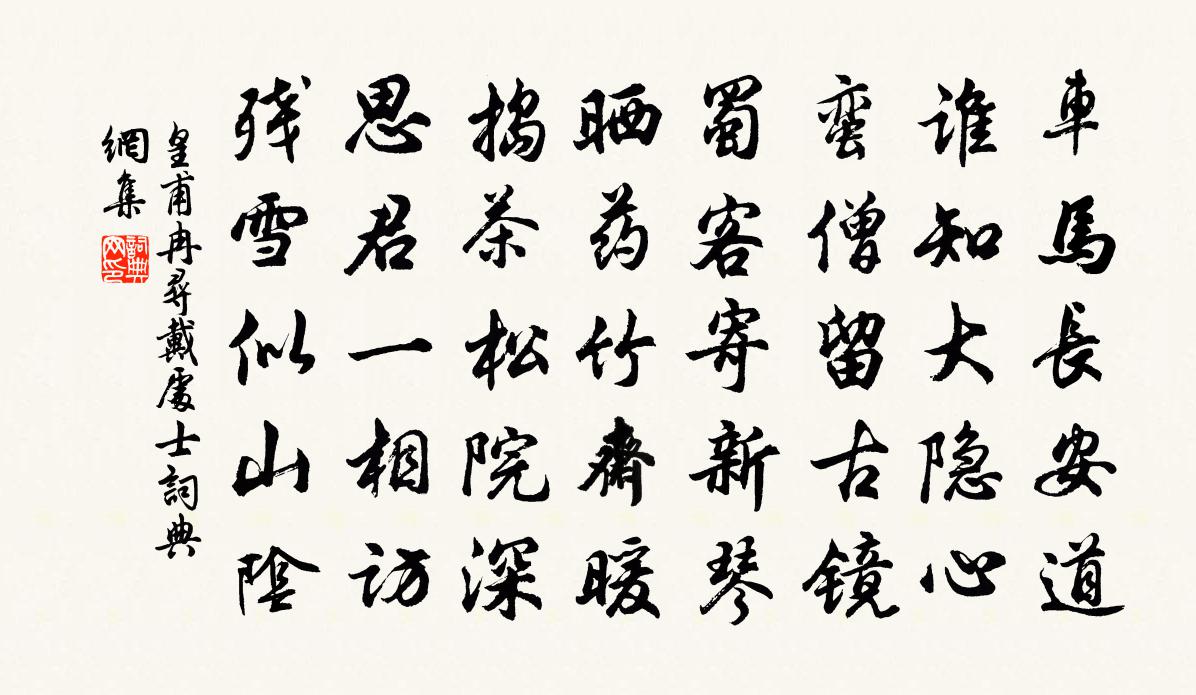 車馬長安道
誰知大隐心
蛮僧留古镜
蜀客寄新琴
晒药竹齋暖
搗茶松院深
思君一相訪
残雪似山陰
皇甫冉尋戴處士詞典
網集
詞典网印